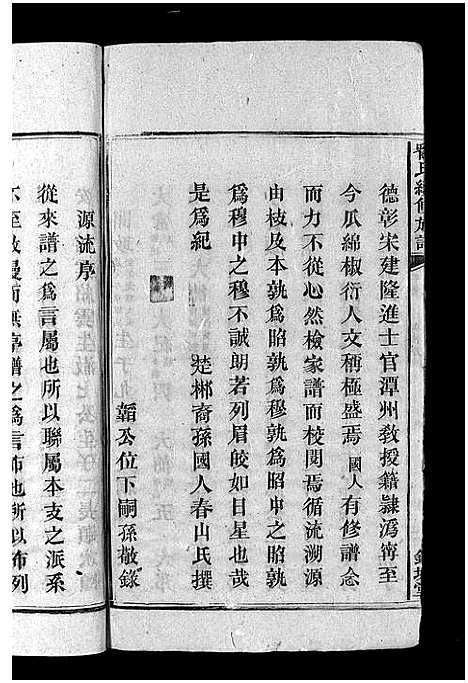 氏續修族譜
德彰宋建隆進士官潭州敎授籍隸潙寗至
今瓜綿椒衍人文稱極盛焉國人有修譜念
而力不從心然檢家譜而校閱焉循流溯源
由枝及本孰爲昭孰爲穆孰爲昭中之昭孰
爲穆中之穆不誠朗若列眉皎如日星也哉
是爲紀
楚郴裔孫國人春山氏撰
韜公位下嗣孫敬錄
源流序
從來譜之爲言屬也所以聯屬本支之派系
不至散漫而無序譜之爲言布也所以布列